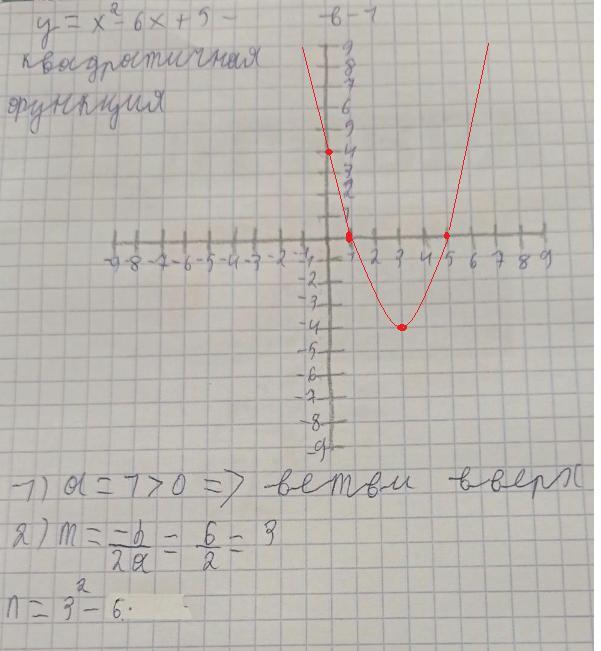 y = x² - 6x + 5 -
квадратичная
функция
-6-1
9
8
7
6
5
4
3
2
1
-9 -8 -7 -6 -5 -4 -3 -2 -1 1 2 3 4 5 6 7 8 9
-1
-2
-3
-4
-5
-6
-7
-8
-9
1) a = 1 > 0 => ветви вверх
2) m = -b/2a = 6/2 = 3
n = 3² - 6·